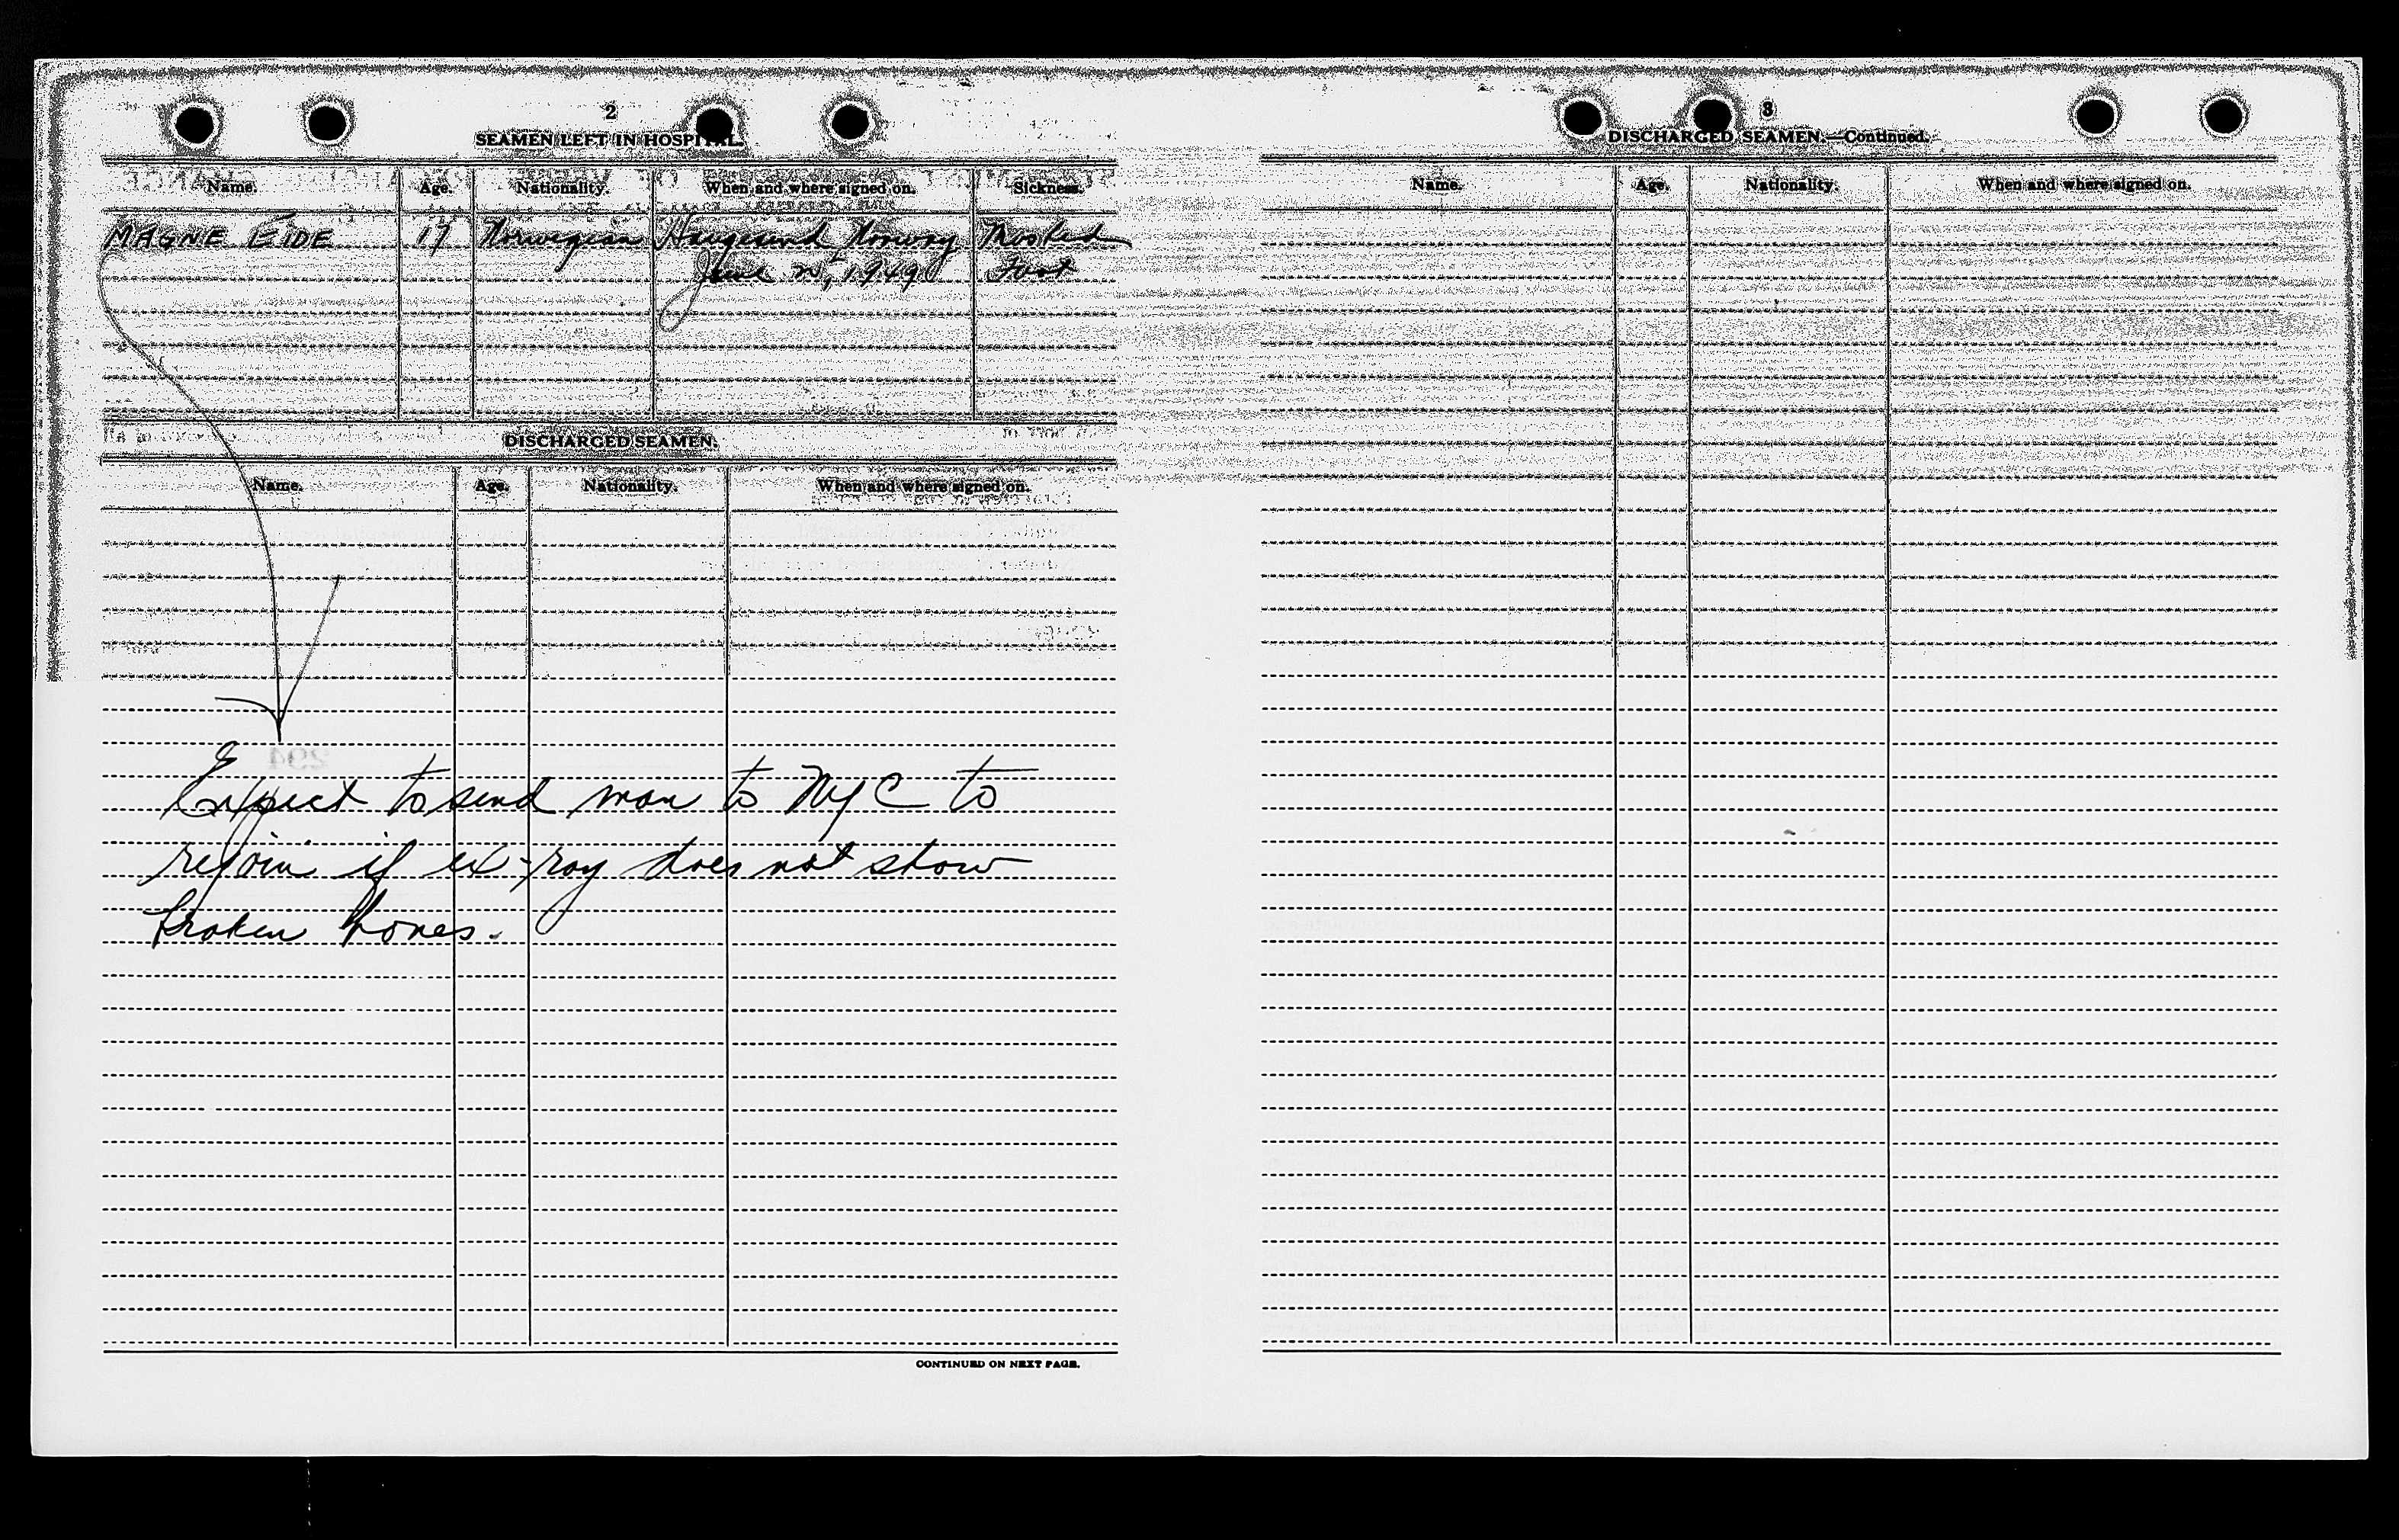 2
SEAMEN LEFT IN HOSPITAL.
Name. Age. Nationality. When and where signed on. Sickness.
MAGNE EIDE 17 Norwegian Haugesund, Norway
June 1949 Foot
DISCHARGED SEAMEN.
Name. Age. Nationality. When and where signed on.
294
Expect to send man to NYC to
rejoin if ex-ray does not show
broken bones.
CONTINUED ON NEXT PAGE.
3
DISCHARGED SEAMEN.—Continued.
Name. Age. Nationality. When and where signed on.